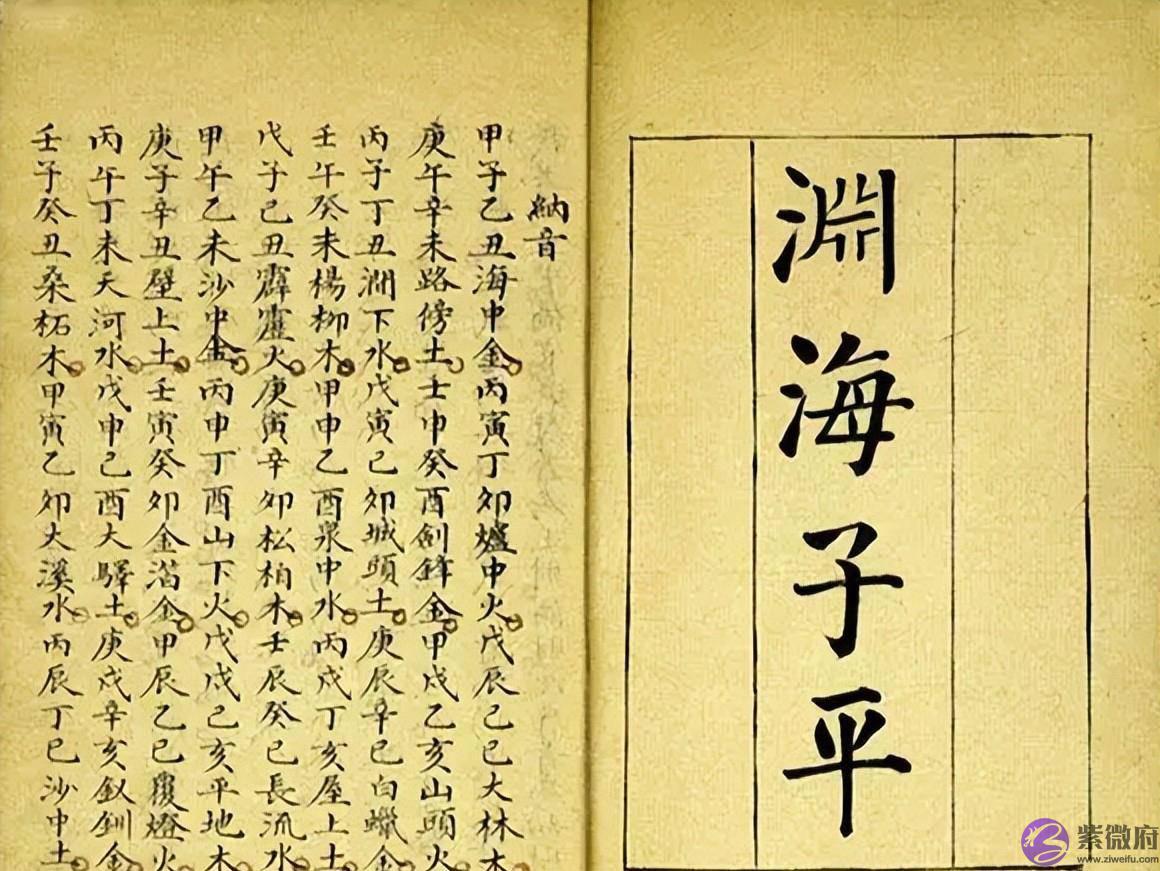 淵海子平
納音
甲子乙丑海中金丙寅丁卯爐中火戊辰己巳大林木
庚午辛未路傍土壬申癸酉劍鋒金甲戌乙亥山頭火
丙子丁丑澗下水戊寅己卯城頭土庚辰辛巳白蠟金
壬午癸未楊柳木甲申乙酉泉中水丙戌丁亥屋上土
戊子己丑霹靂火庚寅辛卯松柏木壬辰癸巳長流水
甲午乙未沙中金丙申丁酉山下火戊戌己亥平地木
庚子辛丑壁上土壬寅癸卯金箔金甲辰乙巳覆燈火
丙午丁未天河水戊申己酉大驛土庚戌辛亥釵釧金
壬子癸丑桑柘木甲寅乙卯大溪水丙辰丁巳沙中土
紫微府
www.ziweifu.com